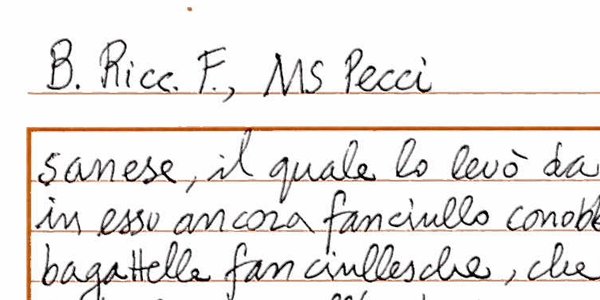 B. Ricc. F., MS Pecci
sanese, il quale lo levò da
in esso ancora fanciullo conobbe
bagattelle fanciullesche, che